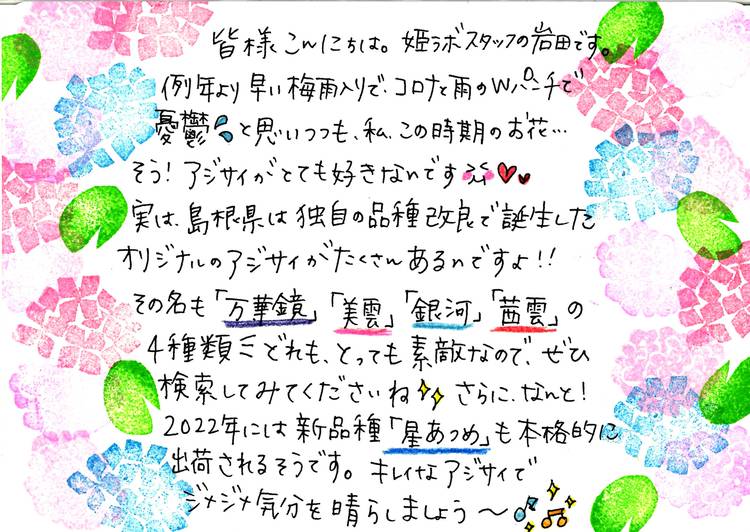 皆様こんにちは。姫ラボスタッフの岩田です。
例年より早い梅雨入りで、コロナと雨のWパンチで
憂鬱と思いつつも、私、この時期のお花…
そう！アジサイがとても好きなんです
実は、島根県は独自の品種改良で誕生した
オリジナルのアジサイがたくさんあるんですよ！！
その名も「万華鏡」「美雲」「銀河」「茜雲」の
4種類ミどれも、とっても素敵なので、ぜひ
検索してみてくださいね さらに、なんと！
2022年には新品種「星あつめ」も本格的に
出荷されるそうです。キレイなアジサイで
ジメジメ気分を晴らしましょう～